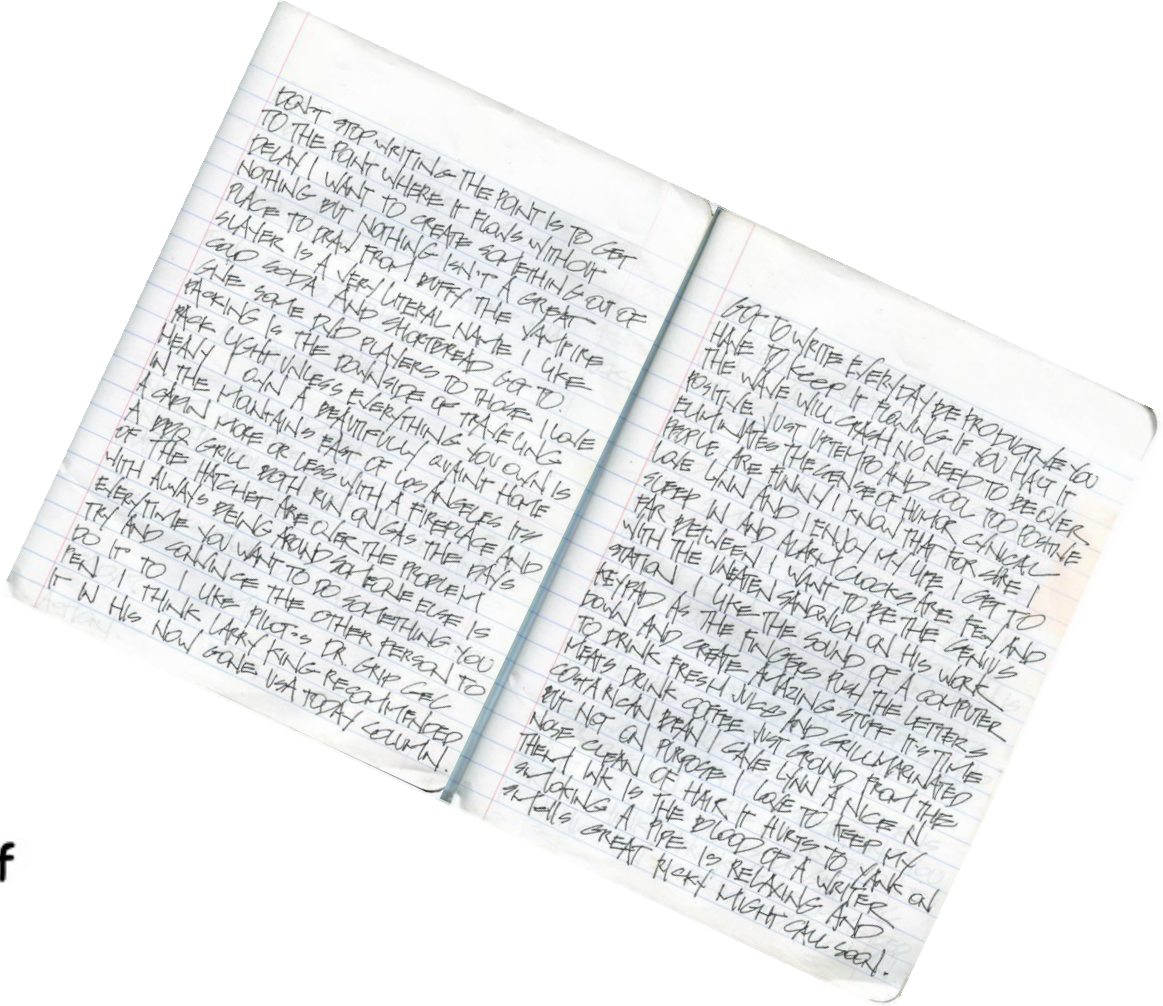 DON'T STOP WRITING THE POINT IS TO GET
TO THE POINT WHERE IT FLOWS WITHOUT
DELAY I WANT TO CREATE SOMETHING OUT OF
NOTHING BUT NOTHING ISN'T A GREAT
PLACE TO DRAW FROM BUFFY THE VAMPIRE
SLAYER IS A VERY LITERAL NAME I LIKE
COLD SODA AND SHORTBREAD GOT TO
GIVE SOME DVD PLAYERS TO THOSE I LOVE
PACKING IS THE DOWNSIDE OF TRAVELING
PACK LIGHT UNLESS EVERYTHING YOU OWN IS
HEAVY I OWN A BEAUTIFULLY QUAINT HOME
IN THE MOUNTAINS EAST OF LOS ANGELES ITS
A CABIN MORE OR LESS WITH A FIREPLACE AND
A BBQ GRILL BOTH RUN ON GAS THE DAYS
OF THE HATCHET ARE OVER THE PROBLEM
WITH ALWAYS BEING AROUND SOMEONE ELSE IS
EVERYTIME YOU WANT TO DO SOMETHING YOU
TRY AND CONVINCE THE OTHER PERSON TO
DO IT TO I LIKE PILOT'S DR. GRIP GEL
PEN I THINK LARRY KING RECOMMENDED
IT IN HIS NOW GONE USA TODAY COLUMN.
GOT TO WRITE EVERYDAY BE PRODUCTIVE YOU
HAVE TO KEEP IT FLOWING IF YOU HALT IT
THE WAVE WILL CRASH NO NEED TO BE OVER
POSITIVE JUST UPTEMPO AND COOL TOO POSITIVE
ELIMINATES THE SENSE OF HUMOR CYNICAL
PEOPLE ARE FUNNY I KNOW THAT FOR SURE I
LOVE LYNN AND I ENJOY MY LIFE I GET TO
SLEEP IN AND ALARM CLOCKS ARE FEW AND
FAR BETWEEN I WANT TO BE THE GENIUS
WITH THE UNEATEN SANDWICH ON HIS WORK
STATION I LIKE THE SOUND OF A COMPUTER
KEYPAD AS THE FINGERS PUSH THE LETTERS
DOWN AND CREATE AMAZING STUFF IT'S TIME
TO DRINK FRESH JUICES AND GRILL MARINATED
MEATS DRINK COFFEE JUST GROUND FROM THE
COSTA RICAN BEAN I GAVE LYNN A NICE
BUT NOT ON PURPOSE I LOVE TO KEEP MY
NOSE CLEAN OF HAIR IT HURTS TO YANK ON
THEM INK IS THE BLOOD OF A WRITER
SMOKING A PIPE IS RELAXING AND
SMELLS GREAT RICKY MIGHT CALL SOON.
f